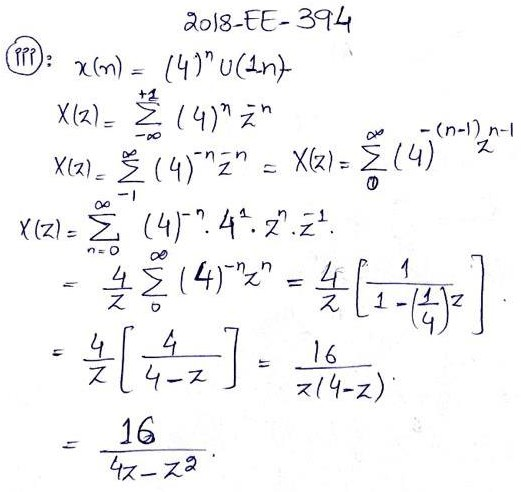 2018-EE-394
(iii): x(n) = (4)^n U(1-n)
X(z) = ∑_{-∞}^{+1} (4)^n z^{-n}
X(z) = ∑_{-1}^{∞} (4)^{-n} z^{-n} = X(z) = ∑_{0}^{∞} (4)^{-(n-1)} z^{n-1}
X(z) = ∑_{n=0}^{∞} (4)^{-n} · 4^1 · z^n · z^{-1}.
= 4/z ∑_{0}^{∞} (4)^{-n} z^n = 4/z [1/(1-(1/4)z)].
= 4/z [4/(4-z)] = 16/(z(4-z)).
= 16/(4z-z^2).